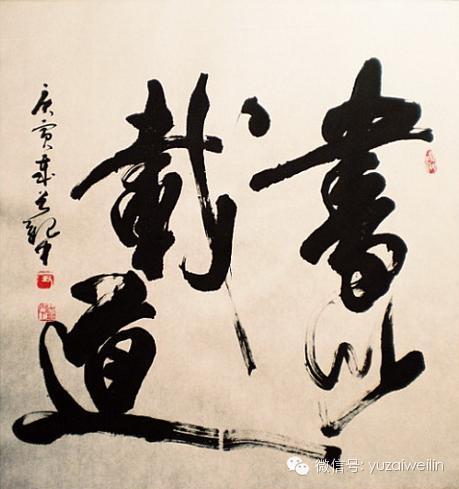 書以
載道
庚寅
微信号: yuzaiweilin